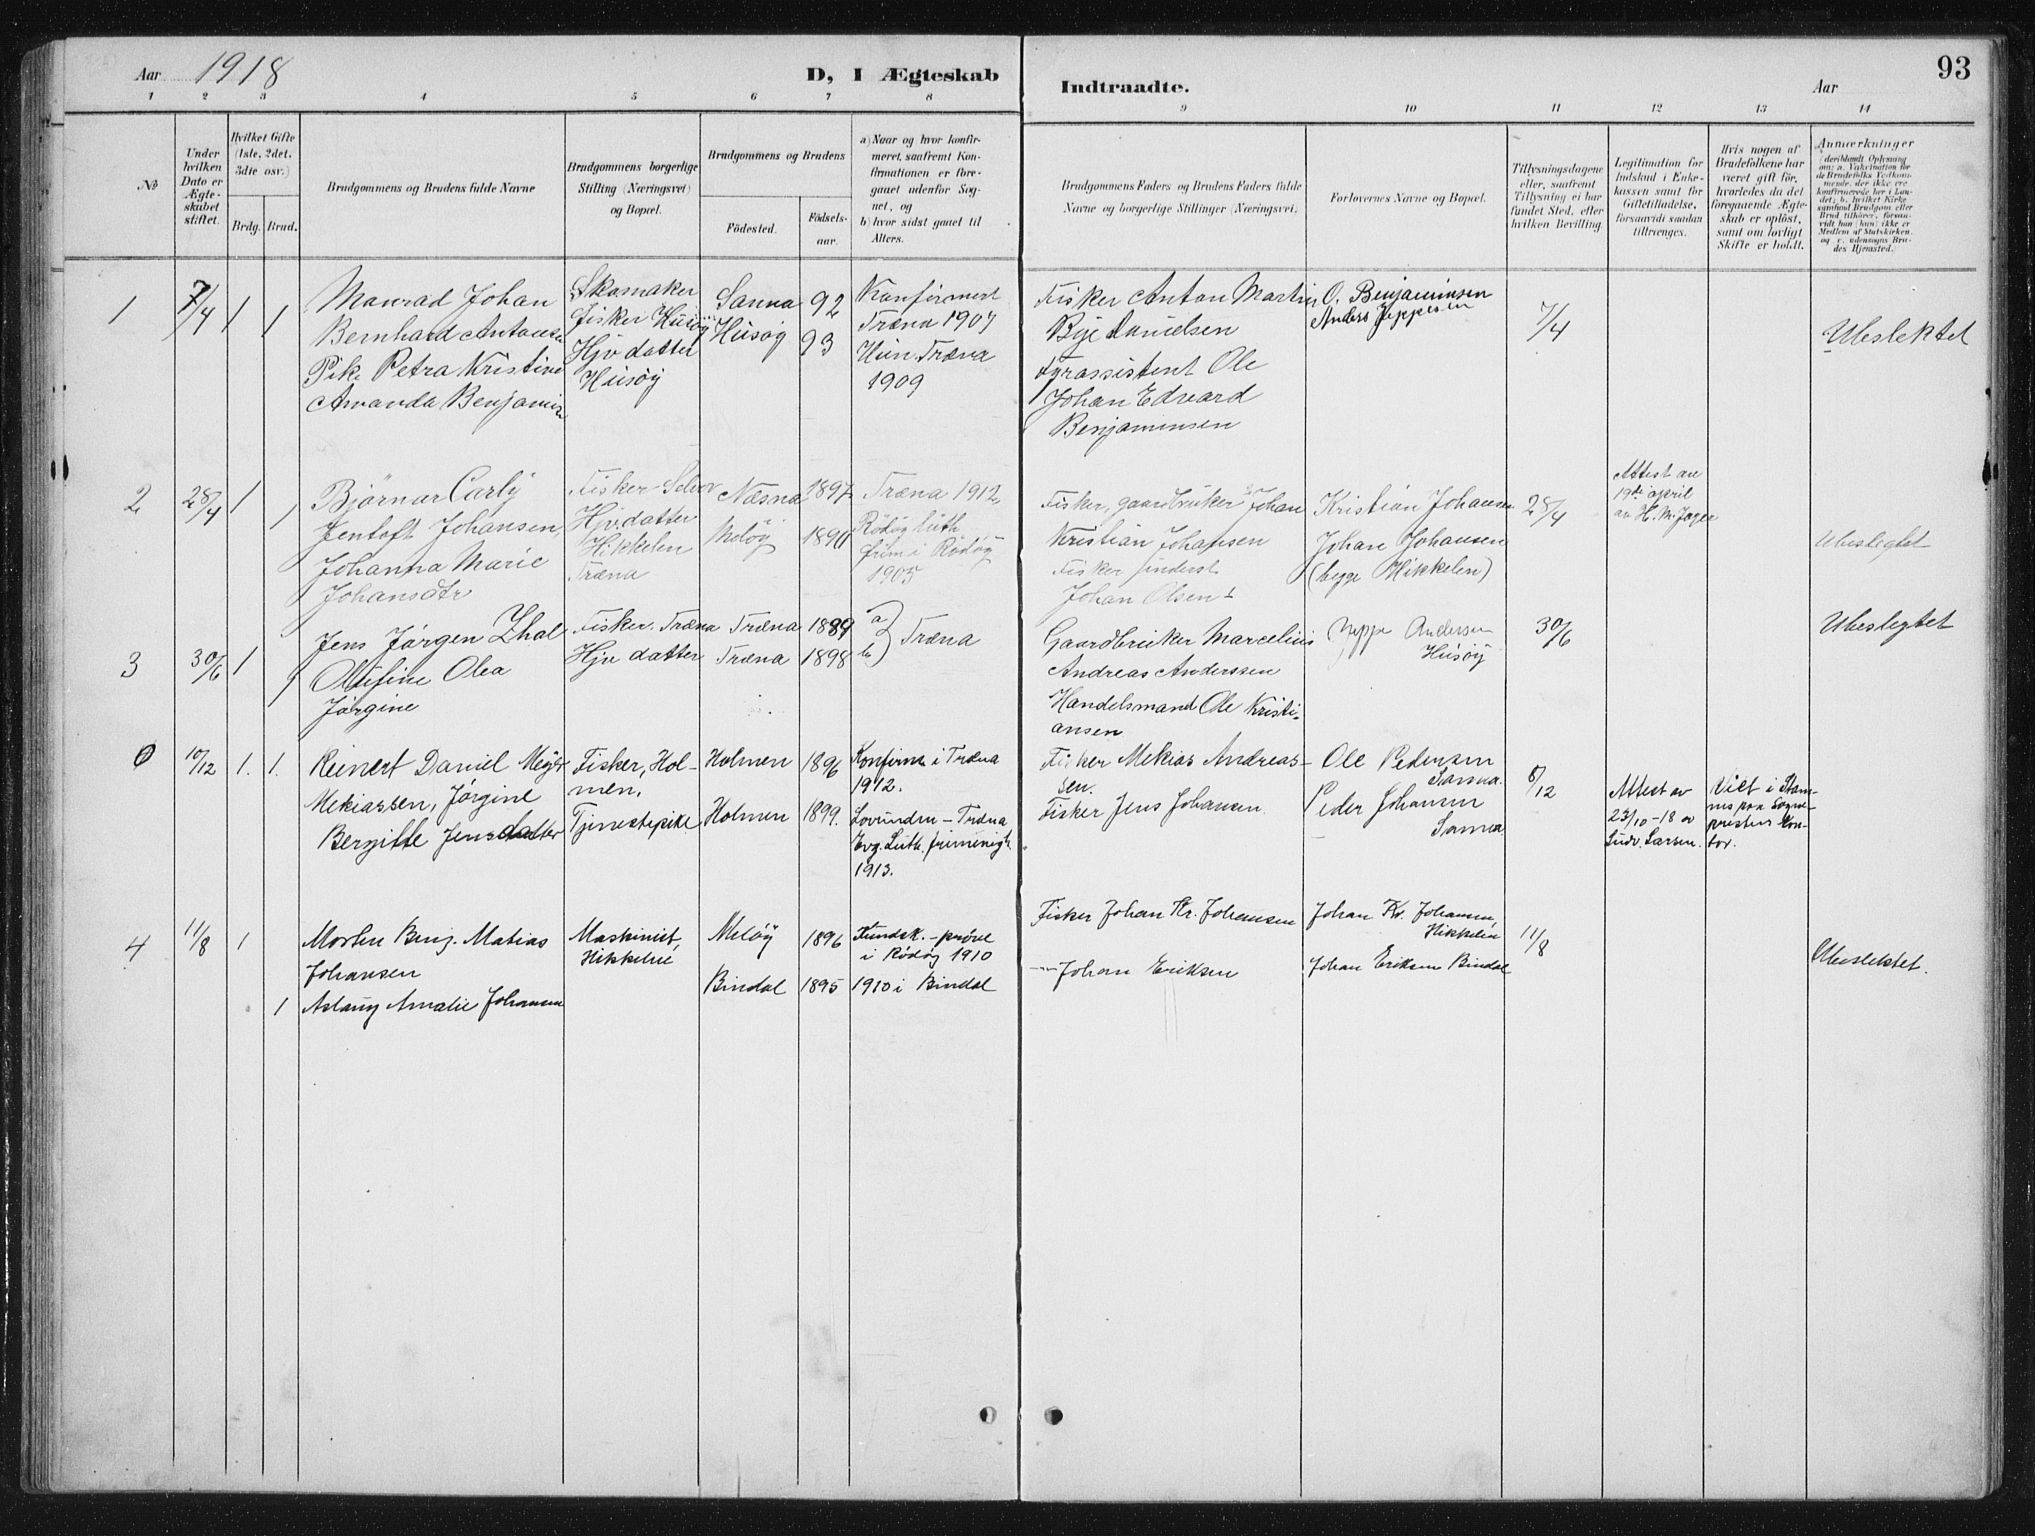 Aar 1918
D, I Ægteskab
Indtraadte.
Aar
93
1 2 3 4 5 6 7 8 9 10 11 12 13 14
No
Under
hvilken
Dato er
Ægte-
skabet
stiftet.
Hvilket Gifte
(1ste, 2det,
3die osv.)
Brdg. Brud.
Brudgommens og Brudens fulde Navne
Brudgommens borgerlige
Stilling (Næringsvei)
og Bopæl.
Brudgommens og Brudens
Födested.
Födsels-
aar.
a) Naar og hvor konfir-
meret, saafremt Kon-
firmationen er fore-
gaaet udenfor Sog-
net, og
b) hvor sidst gaaet til
Alters.
Brudgommens Faders og Brudens Faders fulde
Navne og borgerlige Stillinger (Næringsvei)
Forlovernes Navne og Bopæl.
Tillysningsdagene
eller, saafremt
Tillysning ei har
fundet Sted, efter
hvilken Bevilling.
Legitimation for
Indskud i Enke-
kassen samt for
Giftetilladelse,
forsaavidt saadan
tiltrænges.
Hvis nogen af
Brudefolkene har
været gift för,
hvorledes da det
foregaaende Ægte-
skab er oplöst,
samt om lovligt
Skifte er holdt.
Anmærkninger
(deriblandt Oplysning
om: a. Vakcination for
de Brudefolks Vedkom-
mende, der ikke ere
konfirmerede her i Lan-
det; b. hvilket Kirke-
samfund Brudgom eller
Brud tilhörer, forsaa-
vidt han (hun) ikke er
Medlem af Statskirken.
og c. udensogns Bru-
des Hjemsted.
1 7/4 1 1
Monrad Johan
Bernhard Antonsen
Pike Petra Kristine
Amanda Benjamins
Skomaker
fisker Husøy
Hjv datter
Husøy
Sanna 92
Husøy 93
Konfirmert
Træna 1907
Hun Træna
1909
Fisker Anton Martin
Bye Danielsen
Fyrassistent Ole
Johan Edvard
Benjaminsen
O. Benjaminsen
Anders Jeppesen
7/4
Ubeslektet
2 28/4 1 1
Bjørnar Carly
Jentoft Johansen,
Johanna Marie
Johansdtr
Fisker Selvær
Hjv. datter
Hikkelen
Træna
Næsna 1897
Meløy 1890
Træna 1912
Rødøy luth.
frim i Rødøy
1905
Fisker, gaardbruker Johan
Kristian Johansen
Fisker
Johan Olsen
Kristian Johansen
Johan Johansen
(begge Hikkelen)
28/4
Attest av
19de april
av H. M. Jager
Ubeslegtet
3 30/6 1 1
Jens Jørgen Thal
Olufine Olea
Jørgine
Fisker. Træna
Hjv datter
Træna 1889
Træna 1898
a
b) Træna
Gaardbruker Marcelius
Andreas Anderssen
Handelsmand Ole Kristi-
ansen
Jeppe Andersen
Husøy
30/6
Ubeslegtet
0 10/12 1. 1.
Reinert Daniel Meyer
Mekiassen, Jørgine
Bergitte Jensdatter
Fisker, Hol-
men,
Tjenestepike
Holmen 1896
Holmen 1899.
Konfirm i Træna
1912.
Lovunden - Træna
Evg. Luth. frimenigh.
1913.
Fisker Mekias Andreas-
sen.
Fisker Jens Johansen.
Ole Pedersen
Sanna.
Peder Johansen
Sanna
8/12
Attest av
23/10-18 av
Ludv. Larsen.
Viet i Stam-
nes paa Sogne-
prestens Kon-
tor.
4 11/8 1
Morten Benj. Matias
Johansen
1 Aslaug Amalie Johansen
Maskinist,
Hikkelen
Meløy 1896
Bindal 1895
Kundsk.-prøve
i Rødøy 1910
1910 i Bindal
Fisker Johan Kr. Johansen
-"- Johan Eriksen
Johan Kr. Johansen,
Hikkelen
Johan Eriksen Bindal
11/8
Ubeslektet.